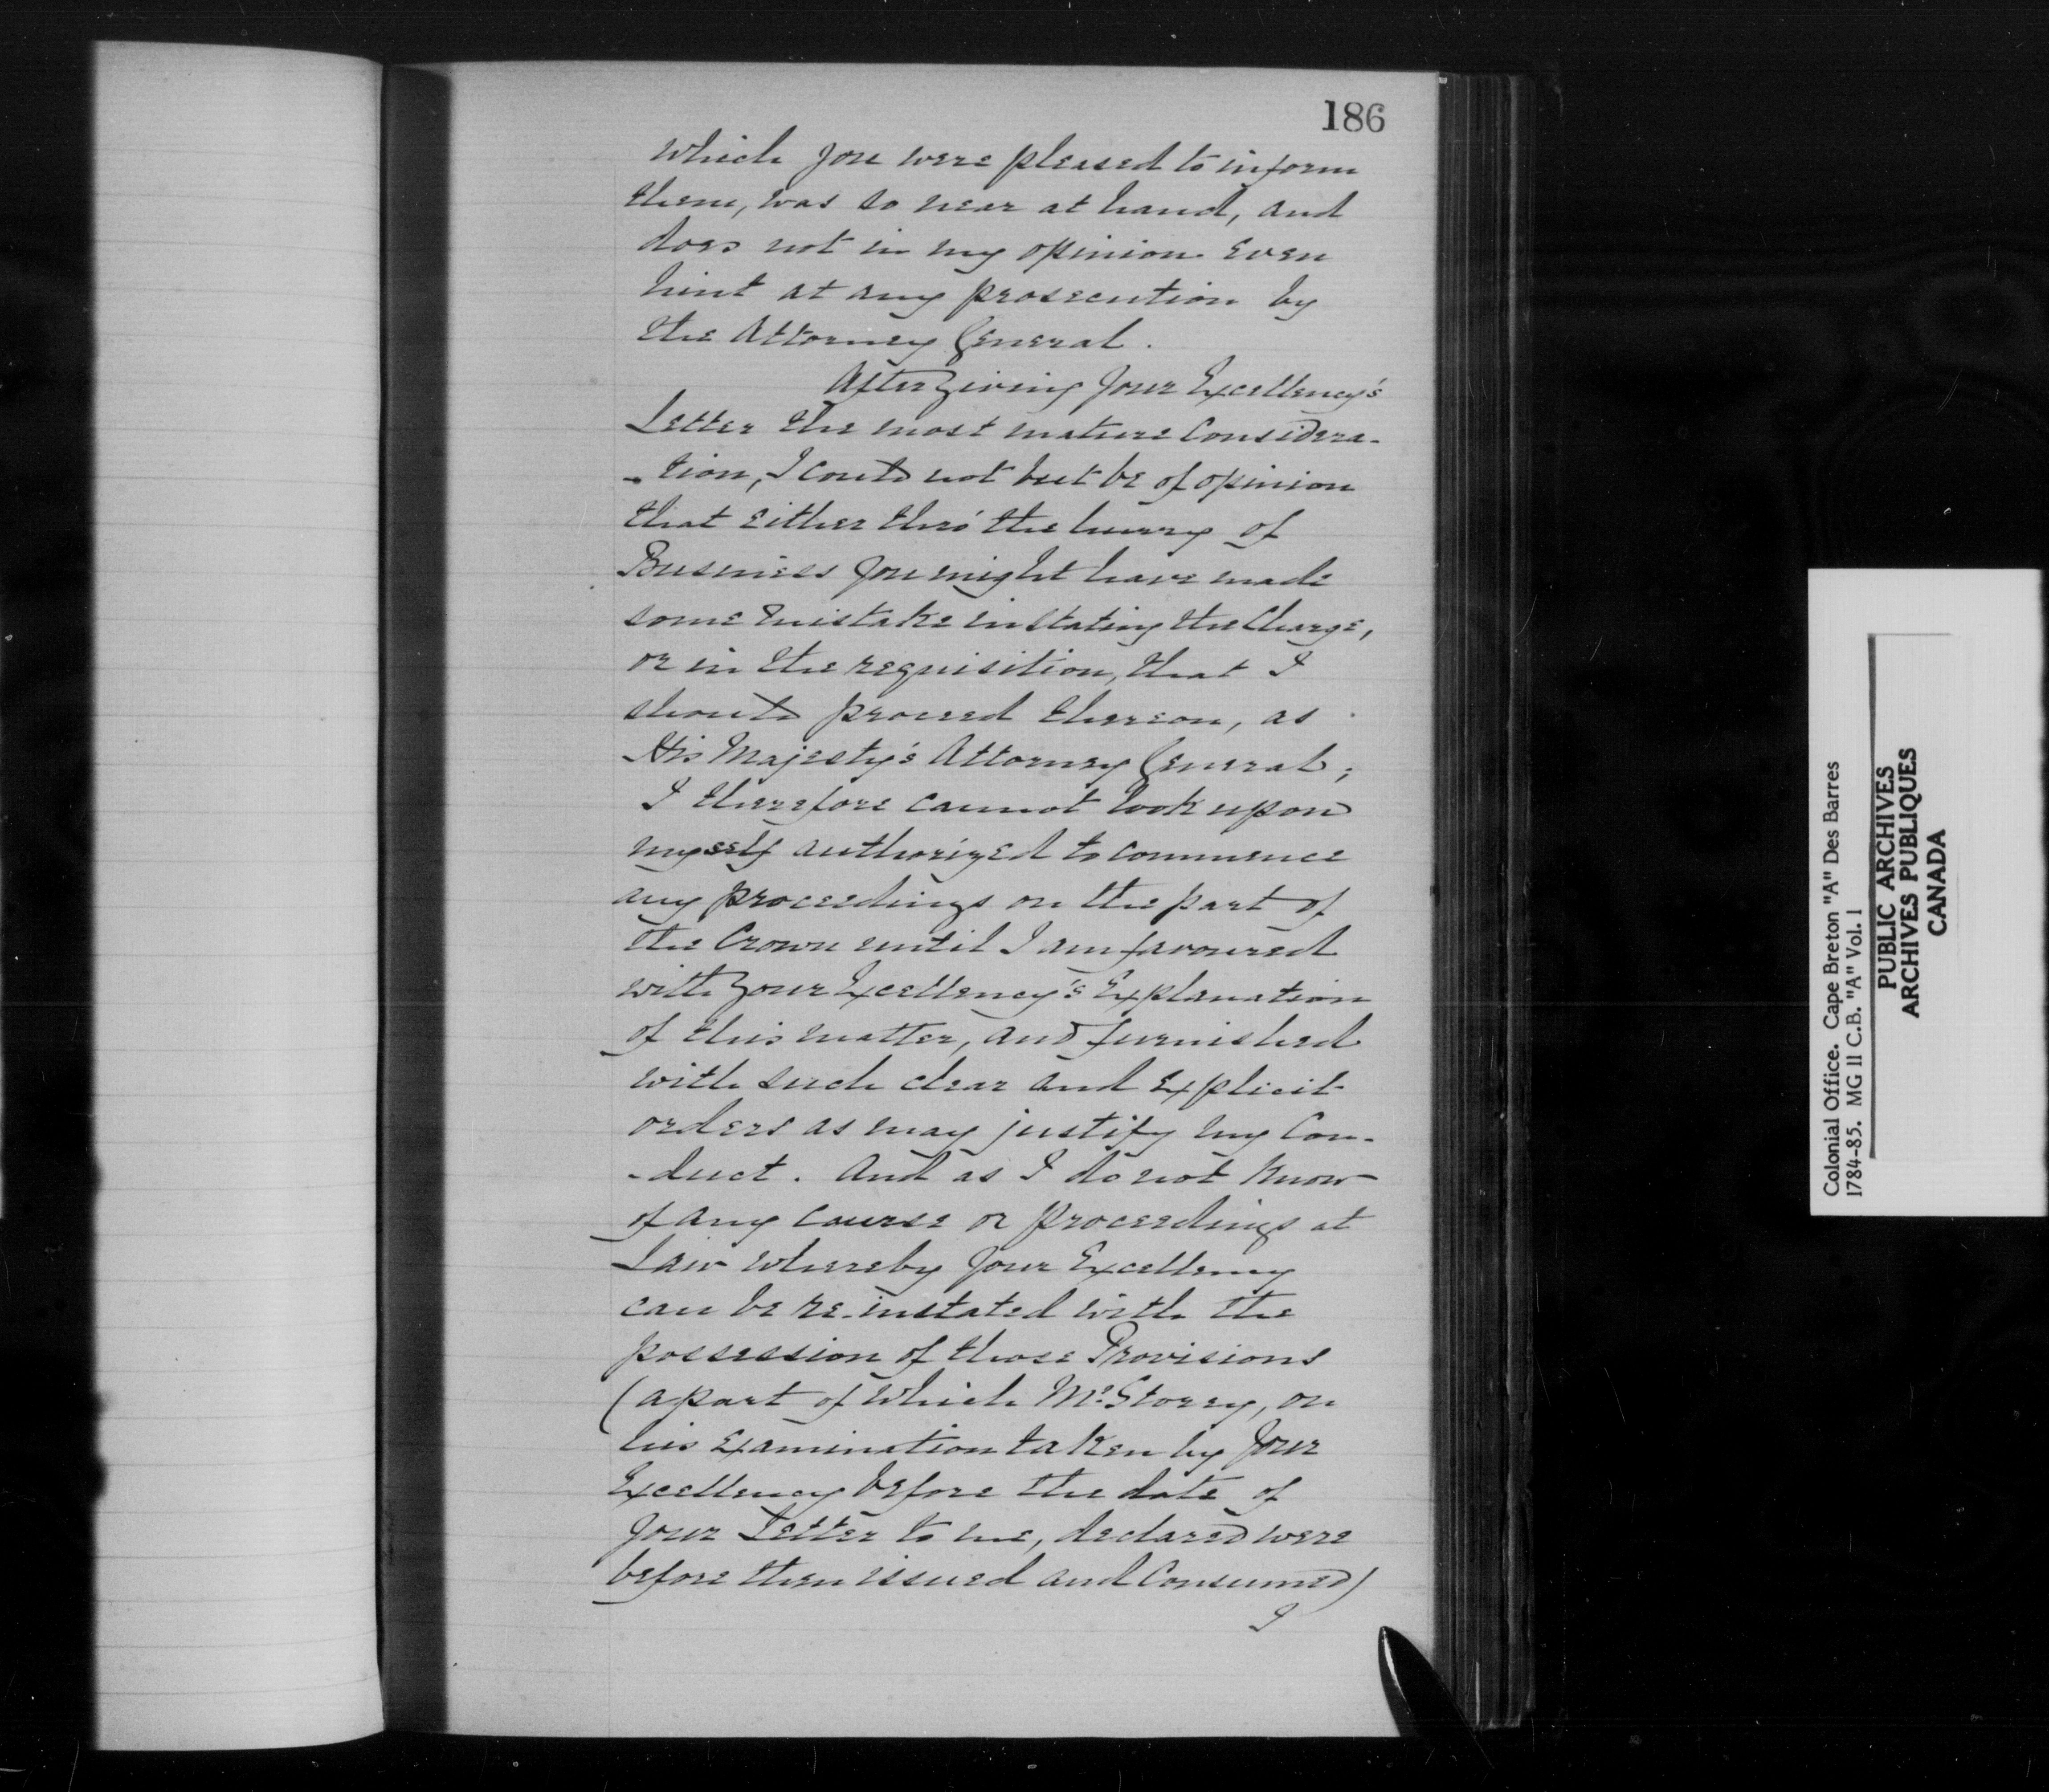 186
which you were pleased to inform
them, was so near at hand, and
does not in my opinion even
hint at any prosecution by
the Attorney General.
After giving your Excellency's
Letter the most mature Considera-
-tion, I could not but be of opinion
that either thro' the hurry of
Business you might have made
some mistake in stating the Charge,
or in the requisition, that I
should proceed thereon, as
His Majesty's Attorney General;
I therefore cannot look upon
myself authorized to commence
any proceedings on the part of
the Crown until I am favoured
with your Excellency's Explanation
of this matter, and furnished
with such clear and Explicit
orders as may justify my Con-
-duct. And as I do not know
of any Course or proceedings at
Law whereby your Excellency
can be re-instated with the
possession of those Provisions
(a part of which Mr. Storey, on
his Examination taken by your
Excellency before the date of
your Letter to me, declared were
before then issued and Consumed)
I
Colonial Office. Cape Breton "A" Des Barres
1784-85. MG 11 C.B. "A" Vol. 1
PUBLIC ARCHIVES
ARCHIVES PUBLIQUES
CANADA